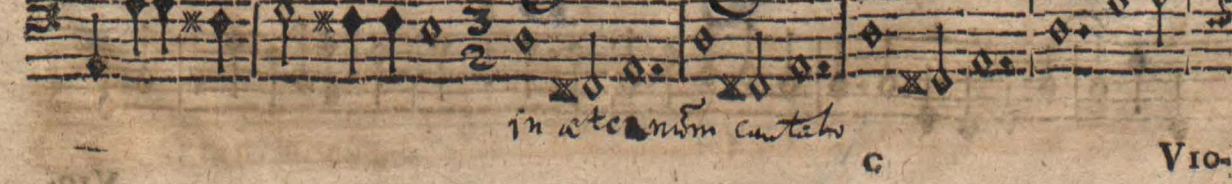 3
2
in æternūm cantabo
C
VIO-